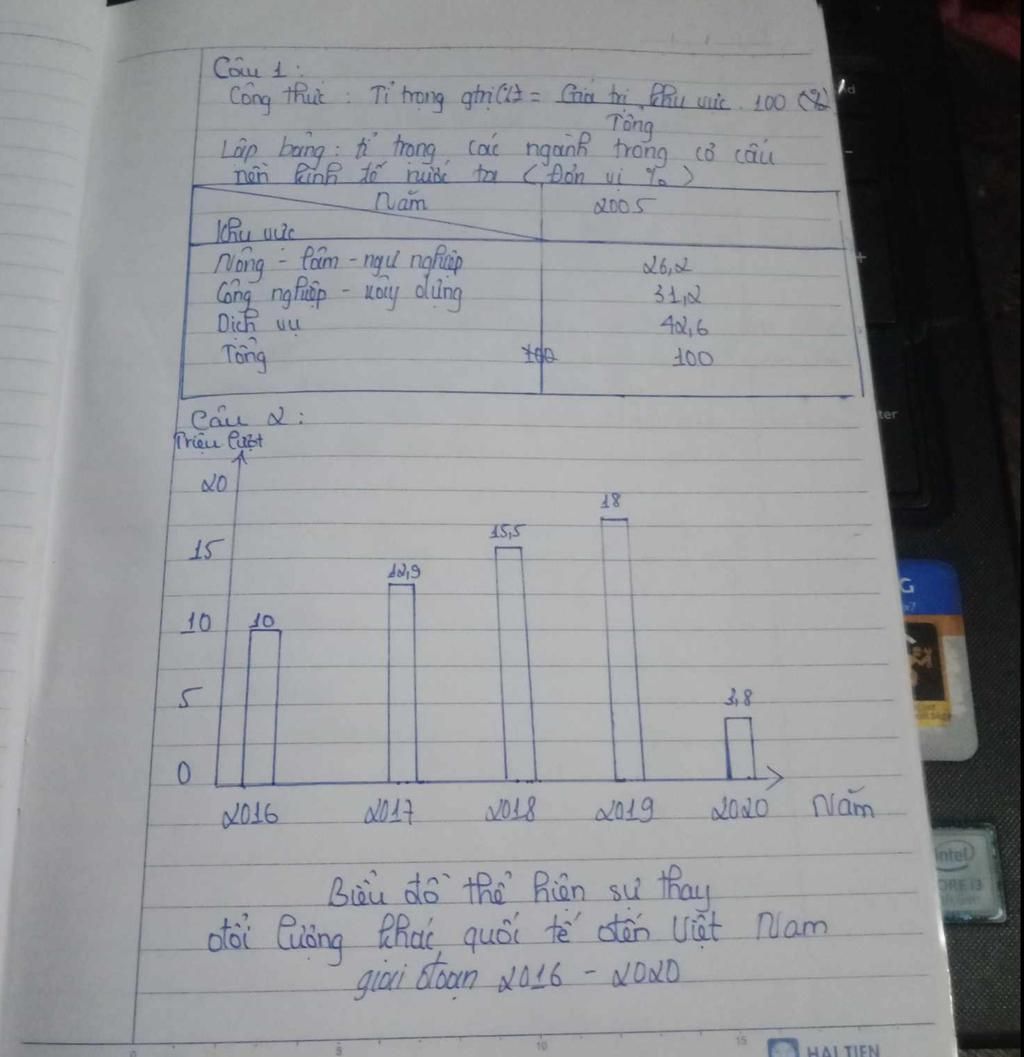 Câu 1:
Công thức: Tỉ trọng gtrị(1) = Giá trị khu vực . 100 (%)
Tổng
Lập bảng: tỉ trọng các ngành trong cơ cấu
nền kinh tế nước ta (Đơn vị %)
Năm 2005
Khu vực
Nông - lâm - ngư nghiệp 26,2
Công nghiệp - xây dựng 31,2
Dịch vụ 42,6
Tổng 100 100
Câu 2:
Triệu lượt
20
18
15,5
15
12,9
10 10
5
3,8
0
2016 2017 2018 2019 2020 Năm
Biểu đồ thể hiện sự thay
đổi lượng khác quốc tế đến Việt Nam
giai đoạn 2016 - 2020
0 5 10 15
HAI TIEN
intel